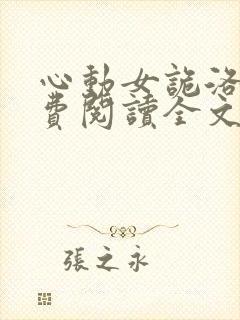 心動女詭洛
費閱讀全文
張之永